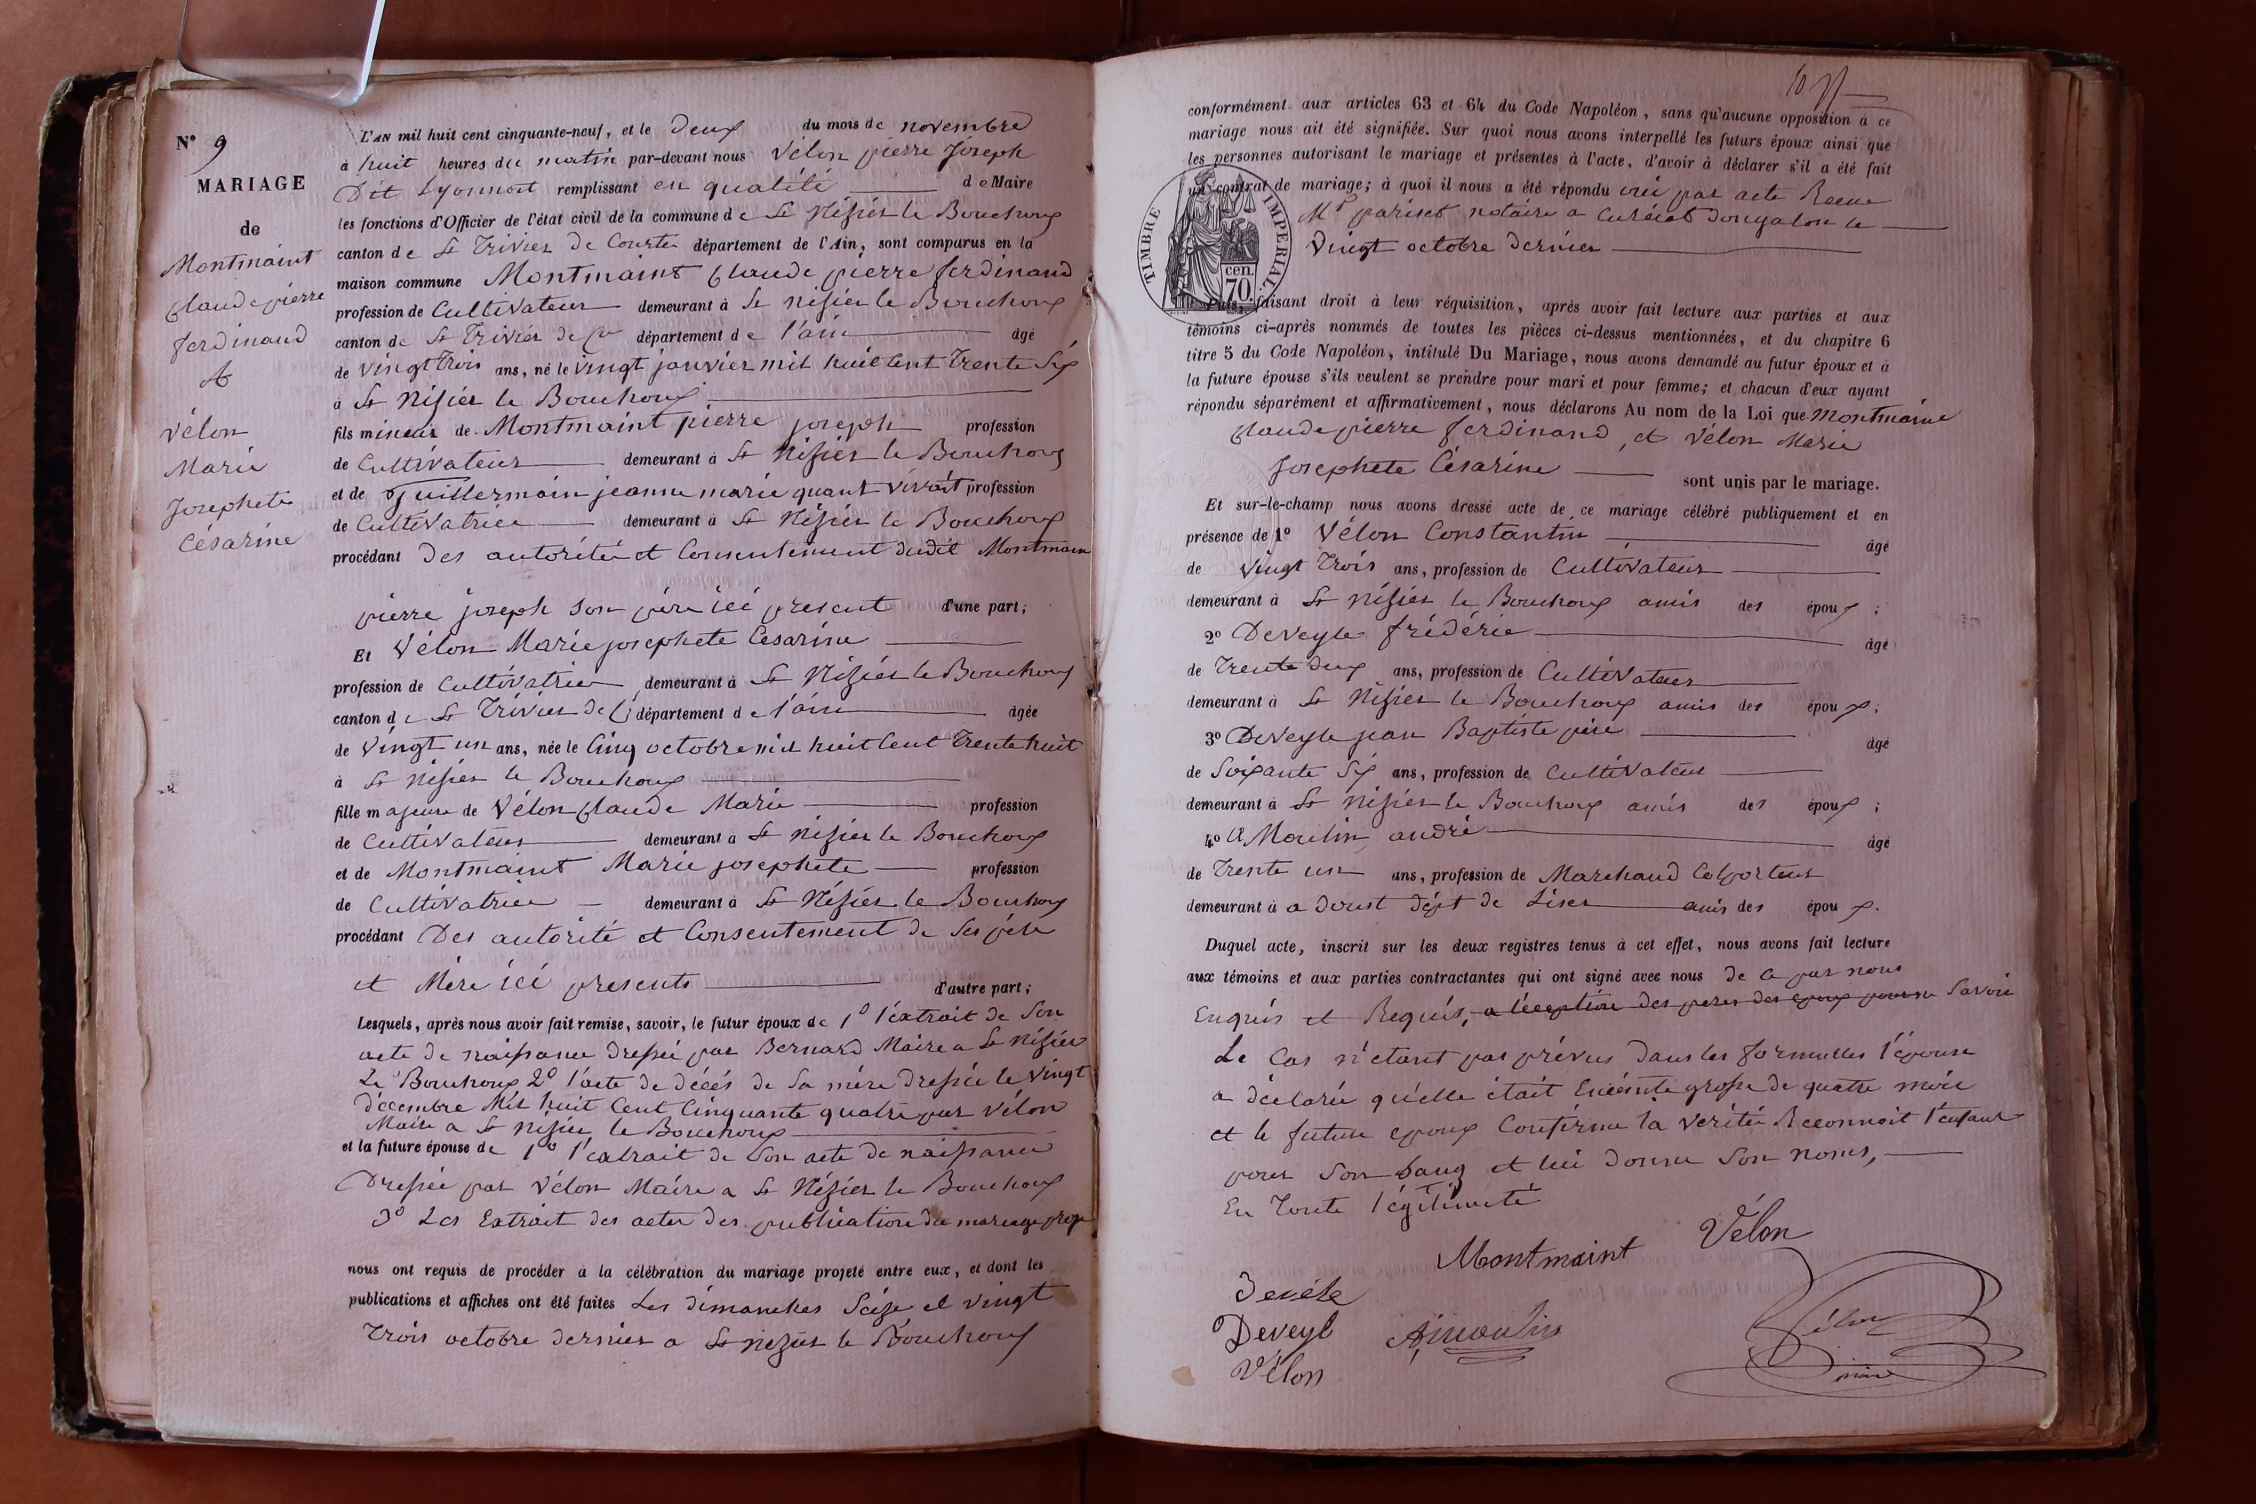 N° 9
MARIAGE
de
Montmaint
Claude pierre
ferdinand
et
Vélon
Marie
Josephete
Césarine
L'AN mil huit cent cinquante-neuf, et le Deux du mois de novembre
à huit heures du matin par-devant nous Vélon pierre Joseph
Dit Lyonnois remplissant en qualité de Maire
les fonctions d'Officier de l'état civil de la commune de St Nizier le Bouchoux
canton de St Trivier De Courtes département de l'Ain, sont comparus en la
maison commune Montmaint Claude pierre ferdinand
profession de Cultivateur demeurant à St nizier le Bouchoux
canton de St Trivier de département de l'ain âgé
de vingt trois ans, né le vingt janvier mil huit cent Trente Six
à St Nizier le Bouchoux
fils mineur de Montmaint pierre joseph profession
de Cultivateur demeurant à St Nizier le Bouchoux
et de Guillermain jeanne marie quant vivait profession
de Cultivatrice demeurant à St Nizier le Bouchoux
procédant Des autorité et Consentement dudit Montmain
pierre joseph son père ici present d'une part;
Et Vélon Marie josephete Cesarine
profession de Cultivatrice demeurant à St Nizier le Bouchoux
canton de St Trivier de C département de l'ain âgée
de vingt un ans, née le Cinq octobre mil huit Cent Trente huit
à St nizier le Bouchoux
fille majeure de Vélon Claude Marie profession
de Cultivateur demeurant à St nizier le Bouchoux
et de Montmaint Marie josephete profession
de Cultivatrice demeurant à St Nizier le Bouchoux
procédant Des autorité et Consentement de Ses père
et Mère ici presents d'autre part;
Lesquels, après nous avoir fait remise, savoir, le futur époux de 1° l'extrait de Son
acte de naissance dressée par Bernard Maire a St Nizier
Le Bouchoux 2° l'acte de décés de Sa mére dressée le vingt
décembre Mil huit Cent Cinquante quatre par Vélon
Maire a St nizier le Bouchoux
et la future épouse de 1° l'extrait de Son acte de naissance
Dressée par Vélon Maire a St Nizier le Bouchoux
3° Les Extrait des actes des publication du mariage proje
nous ont requis de procéder à la célébration du mariage projeté entre eux, et dont les
publications et affiches ont été faites Les dimanches Seize et vingt
Trois octobre dernier a St nizier le Bouchoux
10
conformément aux articles 63 et 64 du Code Napoléon, sans qu'aucune opposition à ce
mariage nous ait été signifiée. Sur quoi nous avons interpellé les futurs époux ainsi que
les personnes autorisant le mariage et présentes à l'acte, d'avoir à déclarer s'il a été fait
un contrat de mariage; à quoi il nous a été répondu oui par acte Recue
Mt pariset notaire a Curciat dongalon le
Vingt octobre dernier
TIMBRE IMPERIAL
cen.
70
Puis, faisant droit à leur réquisition, après avoir fait lecture aux parties et aux
témoins ci-après nommés de toutes les pièces ci-dessus mentionnées, et du chapitre 6
titre 5 du Code Napoléon, intitulé Du Mariage, nous avons demandé au futur époux et à
la future épouse s'ils veulent se prendre pour mari et pour femme; et chacun d'eux ayant
répondu séparément et affirmativement, nous déclarons Au nom de la Loi que Montmaint
Claude pierre ferdinand, et Vélon Marie
Josephete Césarine sont unis par le mariage.
Et sur-le-champ nous avons dressé acte de ce mariage célébré publiquement et en
présence de 1° Vélon Constantin âgé
de Vingt Trois ans, profession de Cultivateur
demeurant à St nizier le Bouchoux amis des époux;
2° Deveyle frédéric âgé
de Trente deux ans, profession de Cultivateur
demeurant à St Nizier le Bouchoux amis des époux;
3° Deveyle jean Baptiste père âgé
de Soixante Six ans, profession de Cultivateur
demeurant à St Nizier le Bouchoux amis des époux;
4° A Moulin andré âgé
de Trente un ans, profession de Marchand Colporteur
demeurant à a doust dépt de Liser amis des époux.
Duquel acte, inscrit sur les deux registres tenus à cet effet, nous avons fait lecture
aux témoins et aux parties contractantes qui ont signé avec nous de ce par nous
Enquis et Requis, a l'éception des peres des epoux pour ne Savoir
Le Cas n'etant pas prévus Dans les formulles l'épouse
a déclarée qu'elle était Enceinte grosse de quatre mois
et le future epoux Confirme la verité Reconnoit l'enfant
pour Son Sang et lui donne Son noms,
En Toute légitimité
Montmaint Vélon
Devéle
Deveyle Amoulin
Vélon
Vélon
maire